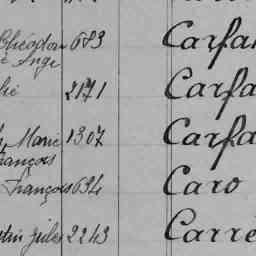 683 Carfa
Ange
2171 Carfa
Marie 1307 Carfa
François
François 634 Caro
Jules 2243 Carré